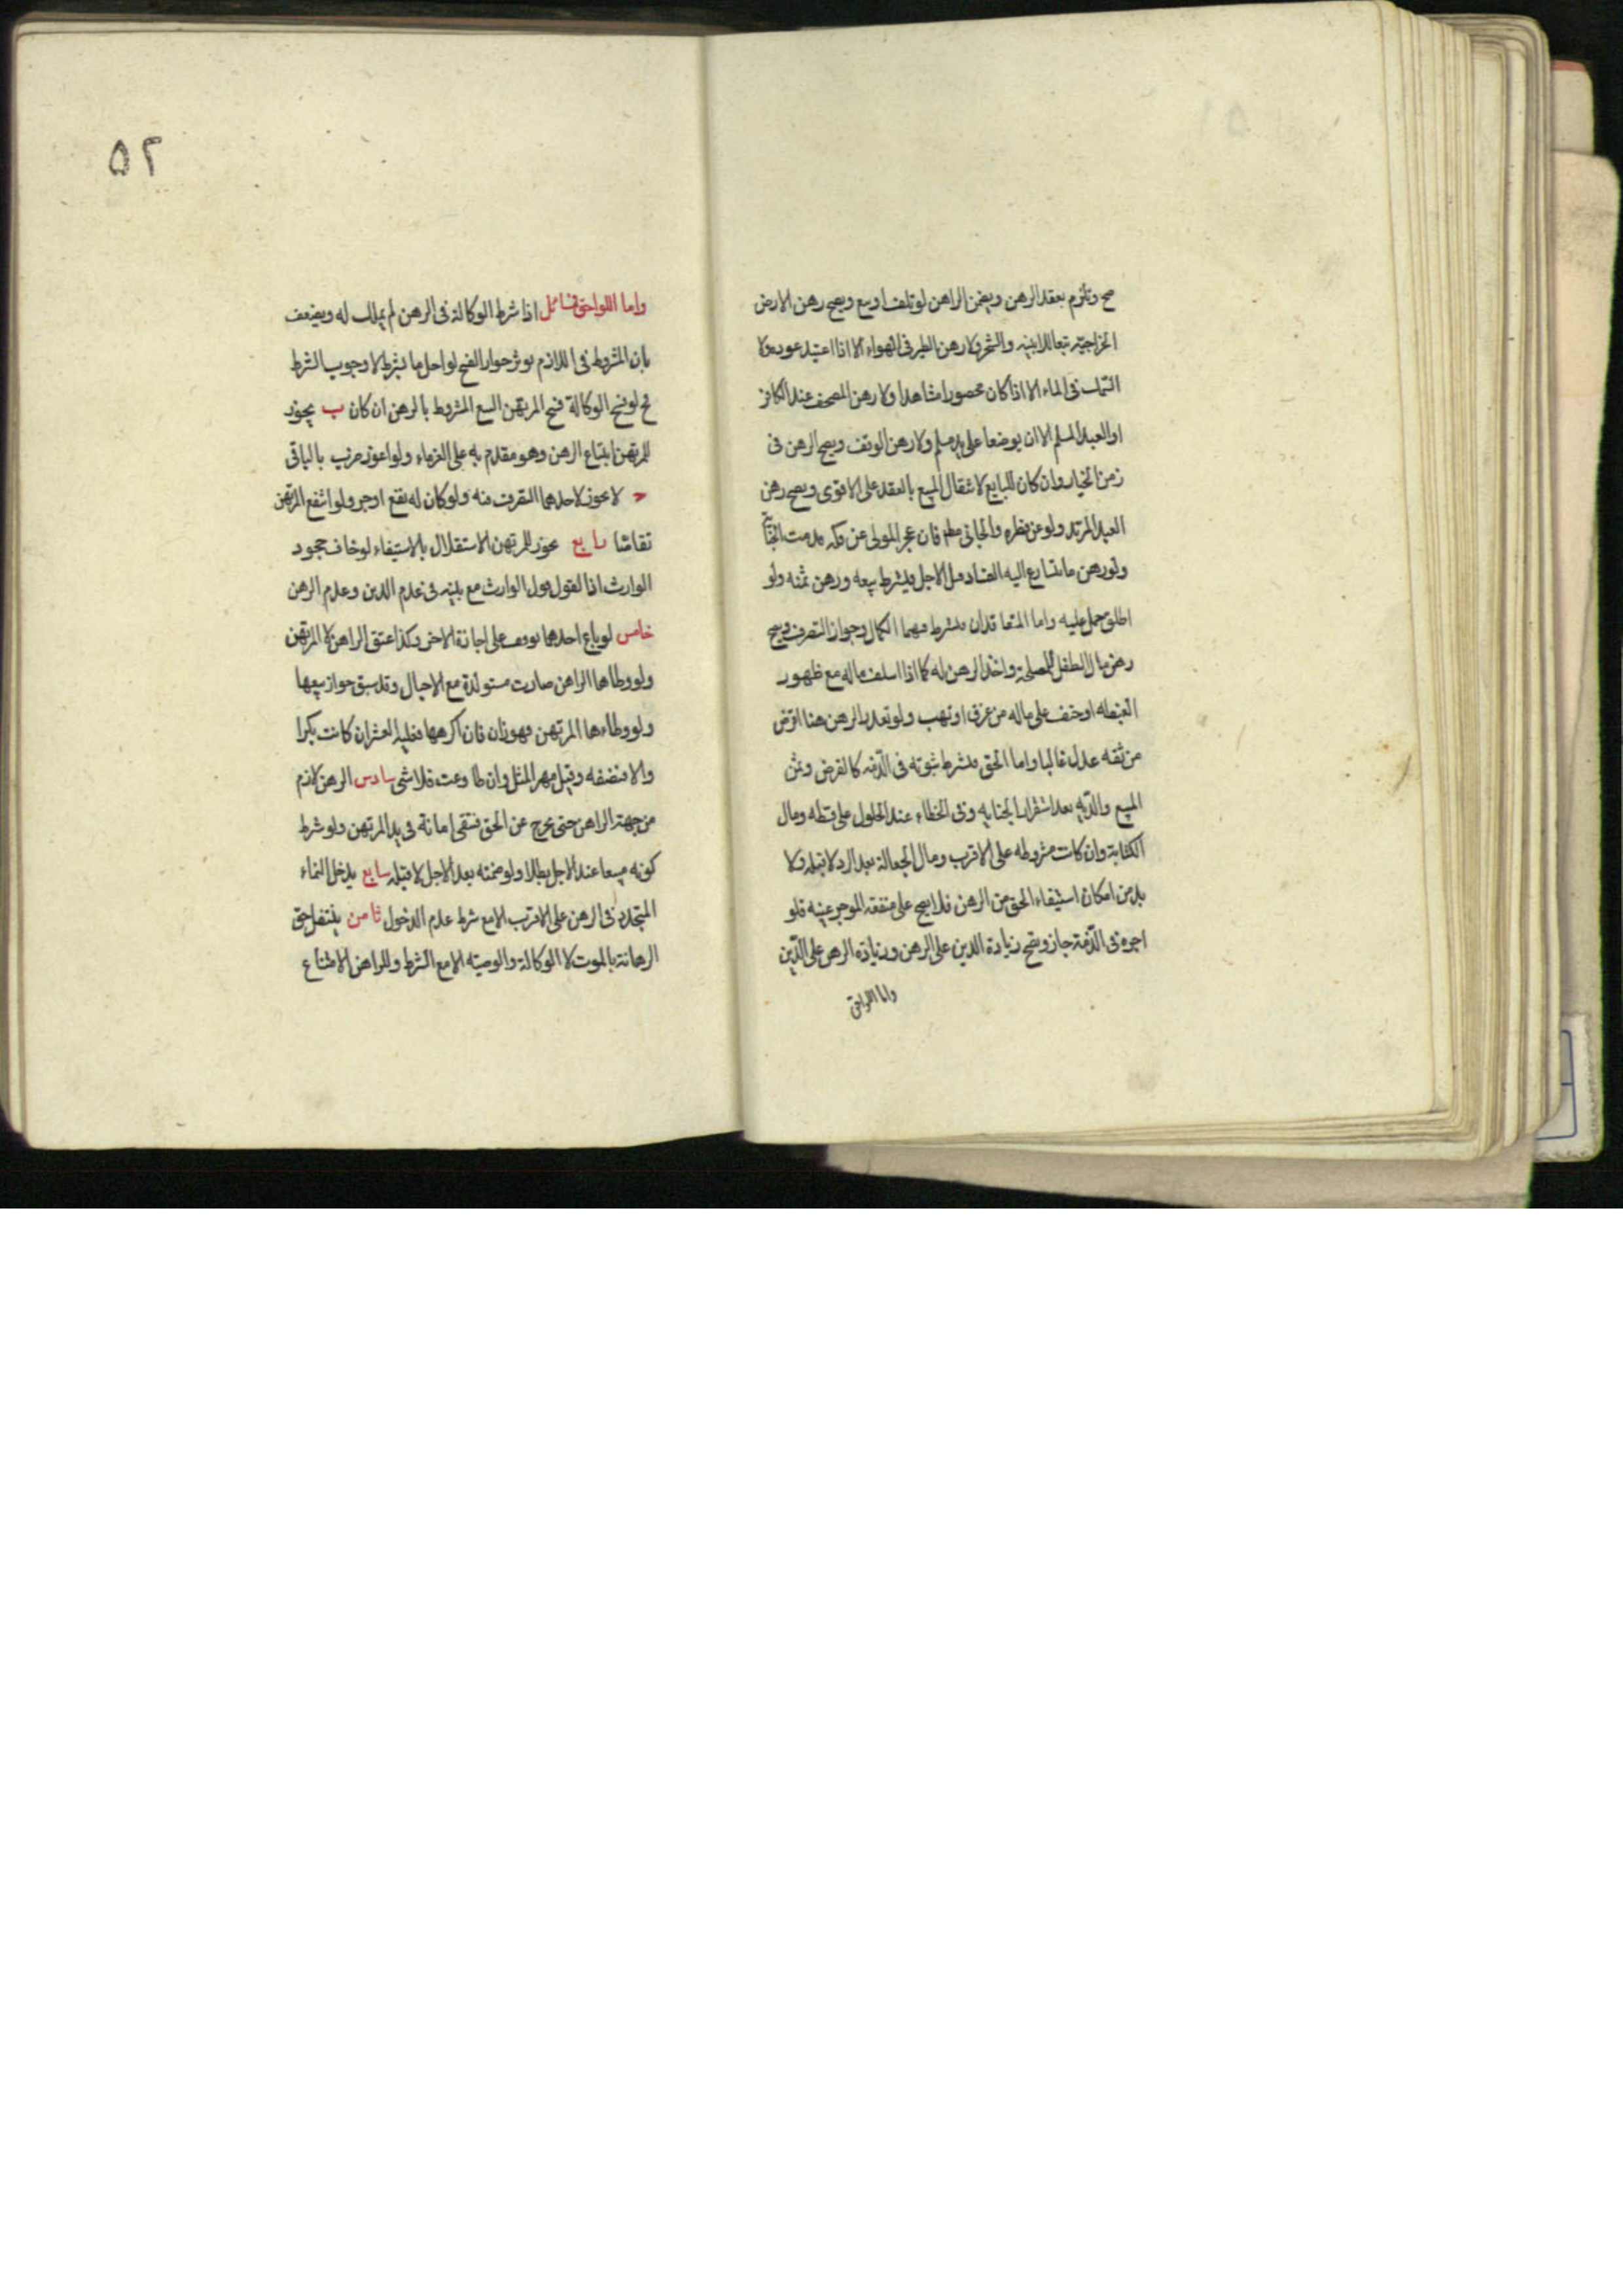 صح وتلزم بعقد الرهن ويضمن الراهن لو تلف او بيع ويصح رهن الارض
الخراجيه تبعا للابنيه والشجر ولا رهن الطير فى الهواء الا اذا اعتيد عوده ولا
السمك فى الماء الا اذا كان محصورا مشاهدا ولا رهن المصحف عند الكافر
او العبد المسلم الا ان يوضعا على يد مسلم ولا رهن الوقف ويصح الرهن فى
زمن الخيار وان كان للبايع لانتقال المبيع بالعقد على الاقوى ويصح رهن
العبد المرتد ولو عن فطره والجانى مطم فان عجز المولى عن فكه قدمت الجناية
ولو رهن ما يتسارع اليه الفساد قبل الاجل فليشترط بيعه ورهن ثمنه ولو
اطلق حمل عليه واما المتعاقدان فيشترط فيهما الكمال وجواز التصرف ويصح
رهن مال الطفل للمصلحة واخذ الرهن له كما اذا اسلف ماله مع ظهور
الغبطه او خيف على ماله من غرق او نهب ولو تعذر الرهن هنا اقرض
من ثقه عدل غالبا واما الحق فيشترط ثبوته فى الذمه كالقرض وثمن
المبيع والديه بعد استقرار الجنايه وفى الخطاء عند الحلول على قسطه ومال
الكتابة وان كانت مشروطه على الاقرب ومال الجعالة بعد الرد لا قبله ولا
بد من امكان استيفاء الحق من الرهن فلا يصح على منفعة الموجر عينه فلو
اجره فى الذمة جاز وتصح زيادة الدين على الرهن وزيادة الرهن على الدين
واما اللواحق
٥٢
واما اللواحق فمسائل اذا شرط الوكالة فى الرهن لم يملك له ويضعف
بان المشروط فى اللازم يوثر جواز الفسخ لو اخل بالشرط لا وجوب الشرط
فح لو فسخ الوكالة فسخ المرتهن البيع المشروط بالرهن ان كان ب يجوز
للمرتهن ابتياع الرهن وهو مقدم به على الغرماء ولو اعوز ضرب بالباقى
ح لا يجوز لاحدهما التصرف فيه ولو كان له نفع اوجر ولو انتفع المرتهن
تقاصا رابع يجوز للمرتهن الاستقلال بالاستيفاء لو خاف جحود
الوارث اذ القول قول الوارث مع يمينه فى عدم الدين وعدم الرهن
خامس لو باع احدهما توقف على اجازة الاخر وكذا عتق الراهن لا المرتهن
ولو وطاها الراهن صارت مستولدة مع الاحبال وقد سبق جواز بيعها
ولو وطاءها المرتهن فهو زان فان اكرهها فعليه العشر ان كانت بكرا
والا فنصفه وقيل مهر المثل وان طاوعت فلا شى سادس الرهن لازم
من جهة الراهن حتى يخرج عن الحق فتبقى امانة فى يد المرتهن ولو شرط
كونه مبيعا عند الاجل بطلا ولو ضمنه بعد الاجل لا قبله سابع يدخل النماء
المتجدد فى الرهن على الاقرب الا مع شرط عدم الدخول ثامن ينتقل حق
الرهانة بالموت لا الوكالة والوصيه الا مع الشرط وللراهن الامتناع